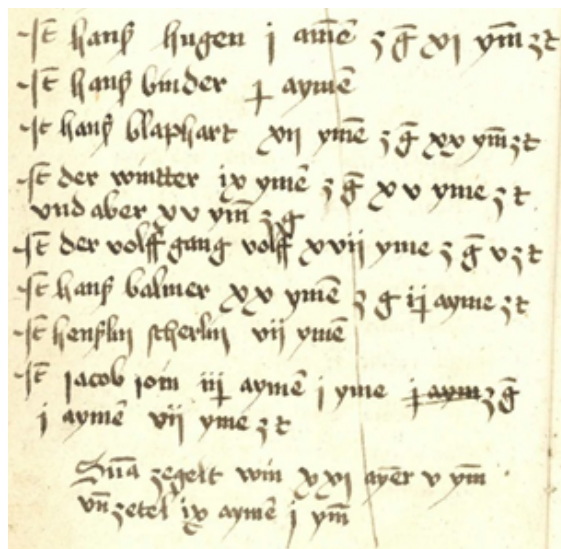 st hanß hugen j amē z g̅ xj ym̄ z t
st hanß binder j aymē
st hanß blaphart xij ymē z g̅ xx ym̄ z t
st der wintter ix ymē z g̅ x v yme z t
vnd aber x v ym̄ z g
st der volff gang volff xvij yme z g̅ v z t
st hanß balmer xx ymē z g ij ayme z t
st henßlin scherlin vij ymē
st jacob join iij aymē j yme j aym z g̅
j aymē vij yme z t
Sūa zegelt win xxj aȳer v ym̄
vn̄ zetel ix aymē j ym̄